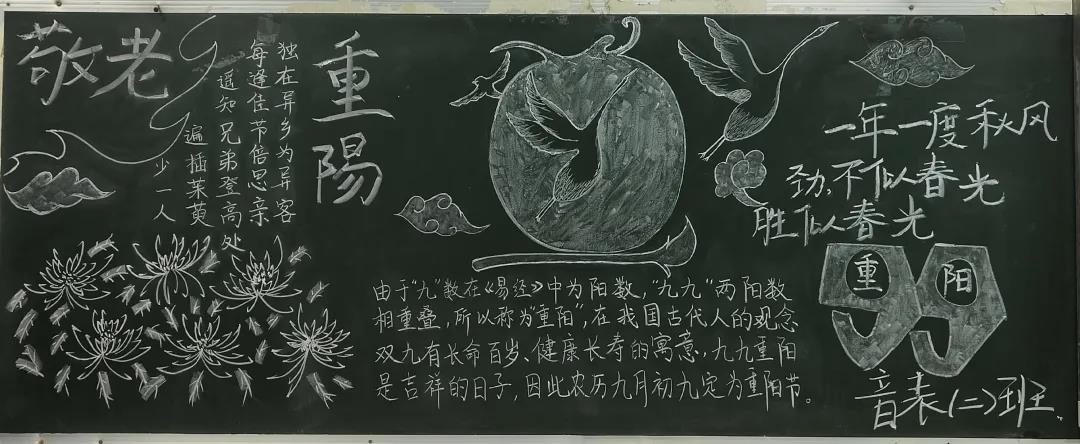 敬老
独在异乡为异客
每逢佳节倍思亲
遥知兄弟登高处
遍插茱萸
少一人
重陽
由于“九”数在《易经》中为阳数,“九九”两阳数
相重叠,所以称为“重阳”,在我国古代人的观念
双九有长命百岁、健康长寿的寓意,九九重阳
是吉祥的日子,因此农历九月初九定为重阳节。
一年一度秋风
劲,不似春光
胜似春光
重 阳
音表(二)班